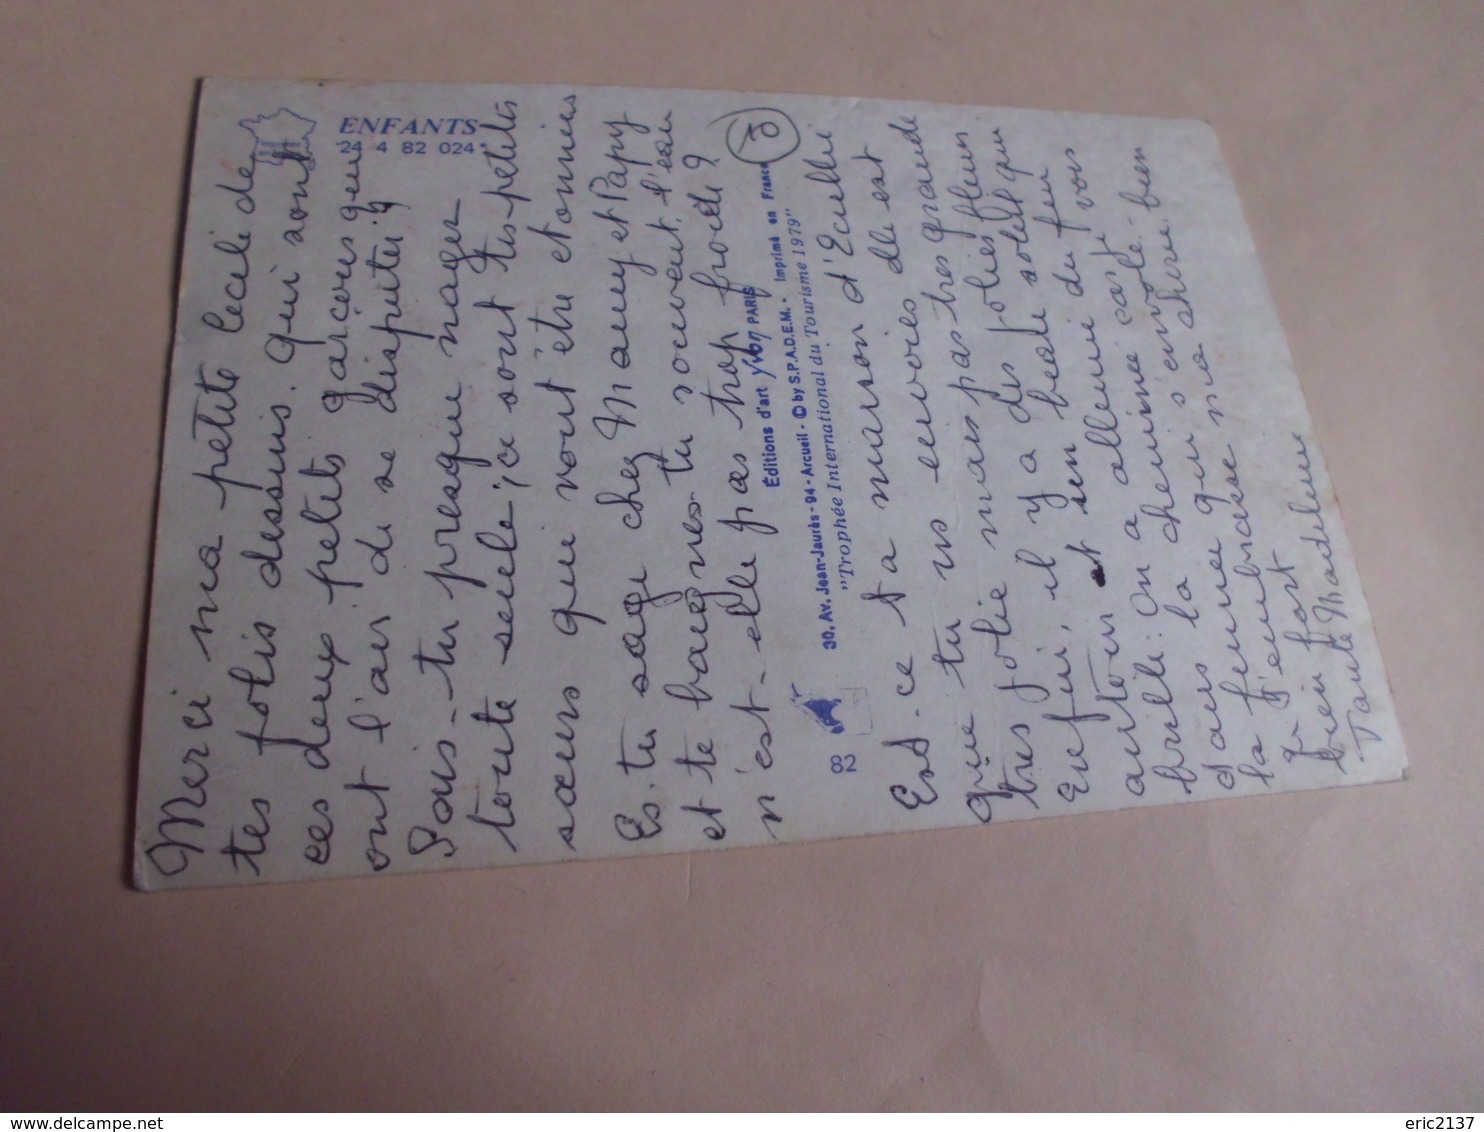 Merci ma petite Cécile de
tes jolis dessins. qui sont
ces deux petits garçons qui
ont l'air de se disputer ?
Sais-tu presque nager
toute seule ; ce sont tes petites
sœurs qui vont être etonnées
Es-tu sage chez Mamy et Papy
et te baignes-tu souvent, l'eau
n'est-elle pas trop froide ?
3
ENFANTS
24 4 82 024
Éditions d'art Yvon PARIS
30, Av. Jean-Jaurès - 94 - Arcueil - © by S.P.A.D.E.M. - Imprimé en France
"Trophée International du Tourisme 1979"
82
Est-ce ta maison d'Ecullié
que tu as envoiés elle est
très jolie mais pas très grande
Enfin, il y a des jolies fleurs
autour et un beau soleil qui
brille. On a allumé du feu
dans la cheminée car je vois
la fumée qui s'envole. bien
Je t'embrasse ma chérie bien
bien fort
Tante Madeleine
eric2137